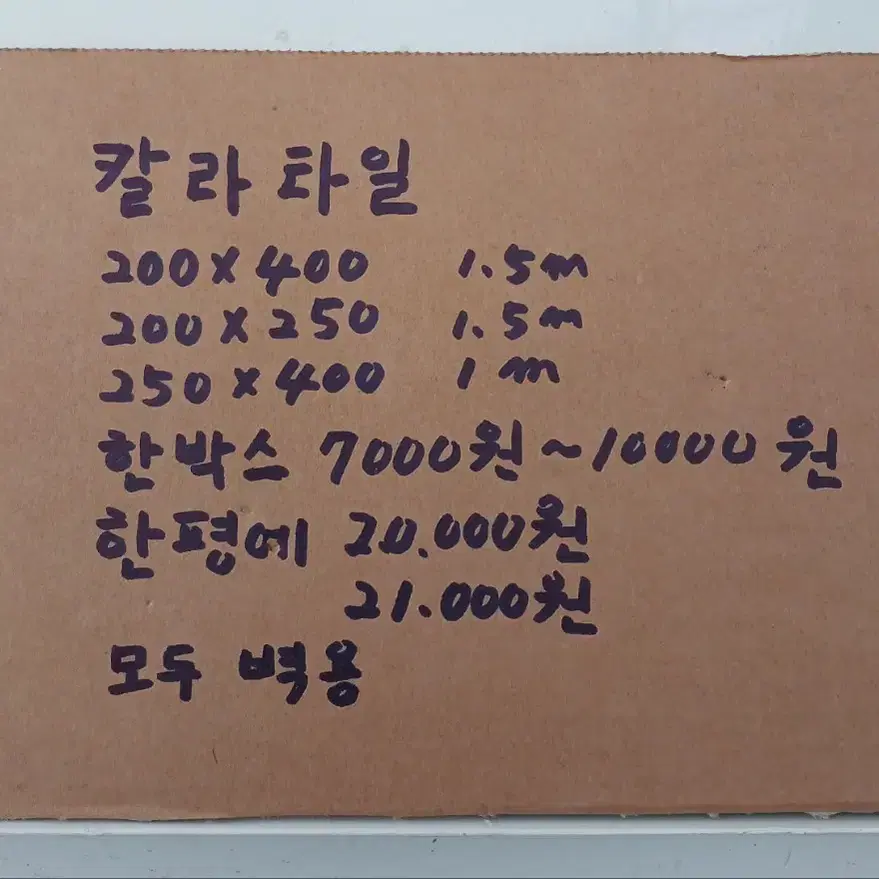 칼라타일
200×400 1.5m
200×250 1.5m
250×400 1m
한박스 7000원~10000원
한평에 20.000원
21.000원
모두 벽용